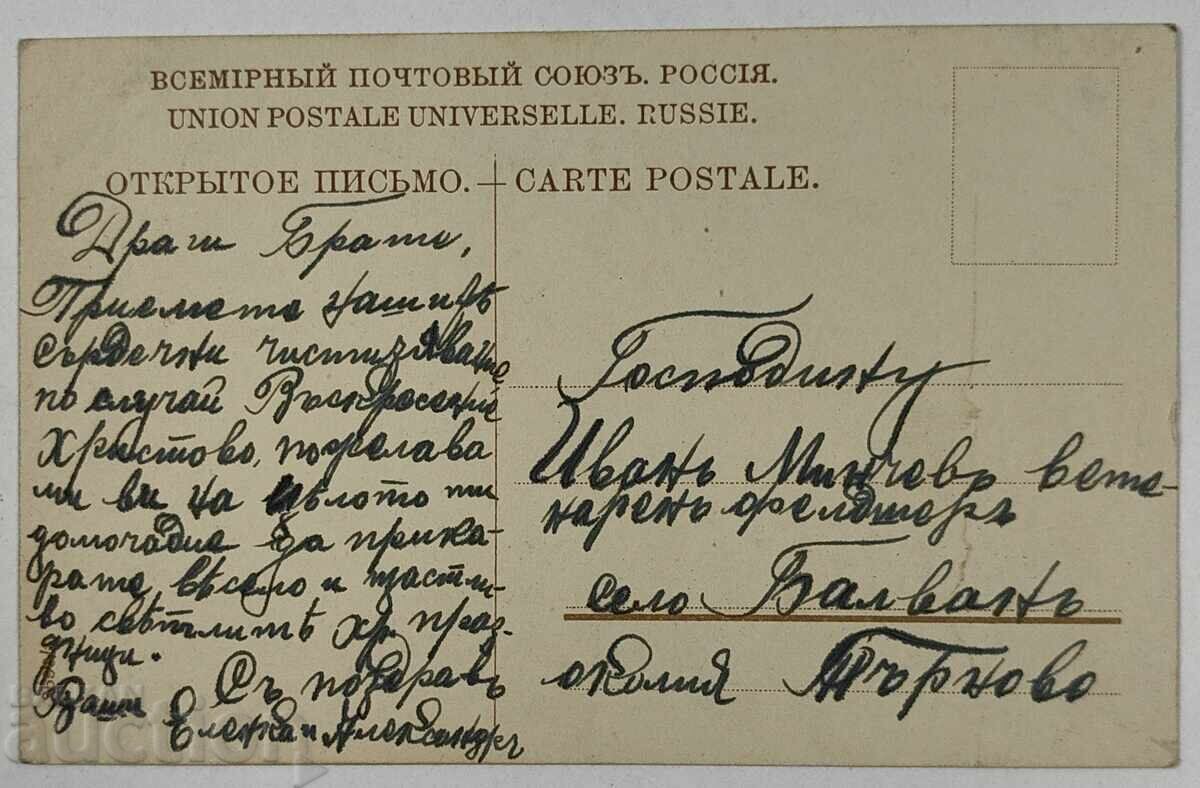 ВСЕМІРНЫЙ ПОЧТОВЫЙ СОЮЗЪ. РОССІЯ.
UNION POSTALE UNIVERSELLE. RUSSIE.
ОТКРЫТОЕ ПИСЬМО. — CARTE POSTALE.
Драги Брате,
Приемете нашитѣ
сърдечни
по случай Въскресение
Христово, пожелава
ми ви на цѣлото ти
домочадие да прика-
рате, вѣсело и щастли-
во свѣтлитѣ Хр. праз-
дници.
Съ поздравъ
Ваши Еленка и Александръ
Господину
Иванъ Минчевъ вете-
наренъ фелдшеръ
село Балванъ
околия Търново
auction